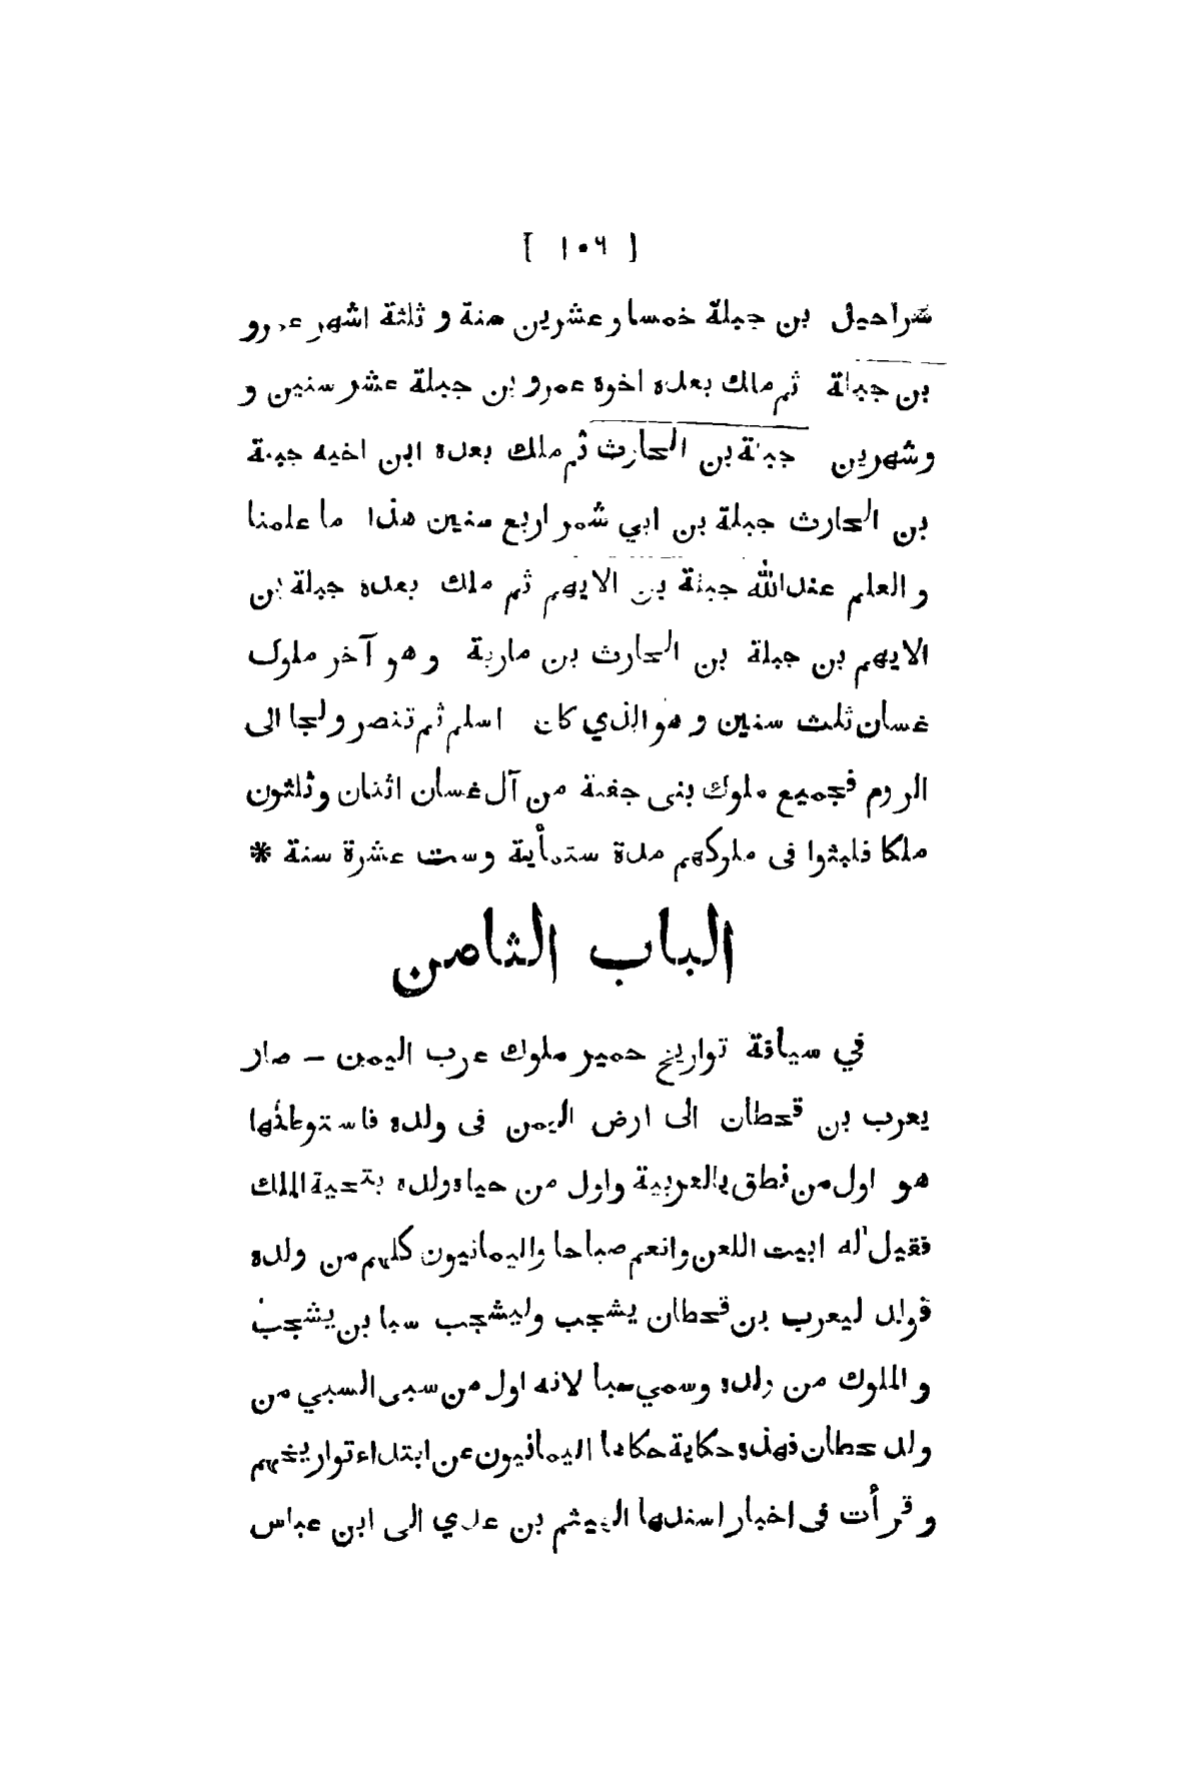 [ ١٠٦ ]
شراحيل بن جبلة خمسا وعشرين سنة و ثلثة اشهر عمرو
بن جبلة ثم ملك بعده اخوه عمرو بن جبلة عشر سنين و
وشهرين جبلة بن الحارث ثم ملك بعده ابن اخيه جبلة
بن الحارث جبلة بن ابي شمر اربع سنين هذا ما علمنا
و العلم عند الله جبلة بن الايهم ثم ملك بعده جبلة بن
الايهم بن جبلة بن الحارث بن مارية و هو آخر ملوك
غسان ثلث سنين و هو الذي كان اسلم ثم تنصر و لجا الى
الروم فجميع ملوك بنى جفنة من آل غسان اثنان وثلثون
ملكا فلبثوا فى ملوكهم مدة ستمأية وست عشرة سنة *
الباب الثامن
في سياقة تواريخ حمير ملوك عرب اليمن – صار
يعرب بن قحطان الى ارض اليمن فى ولده فاستوطنها
هو اول من نطق بالعربية واول من حياه ولده بتحية الملك
فقيل له ابيت اللعن وانعم صباحا واليمانيون كلهم من ولده
فولد ليعرب بن قحطان يشجب وليشجب سبا بن يشجب
و الملوك من ولده وسمي سبا لانه اول من سبى السبي من
ولد قحطان فهذه حكاية حكاها اليمانيون عن ابتداء تواريخهم
و قرأت فى اخبار اسندها الهيثم بن عدي الى ابن عباس